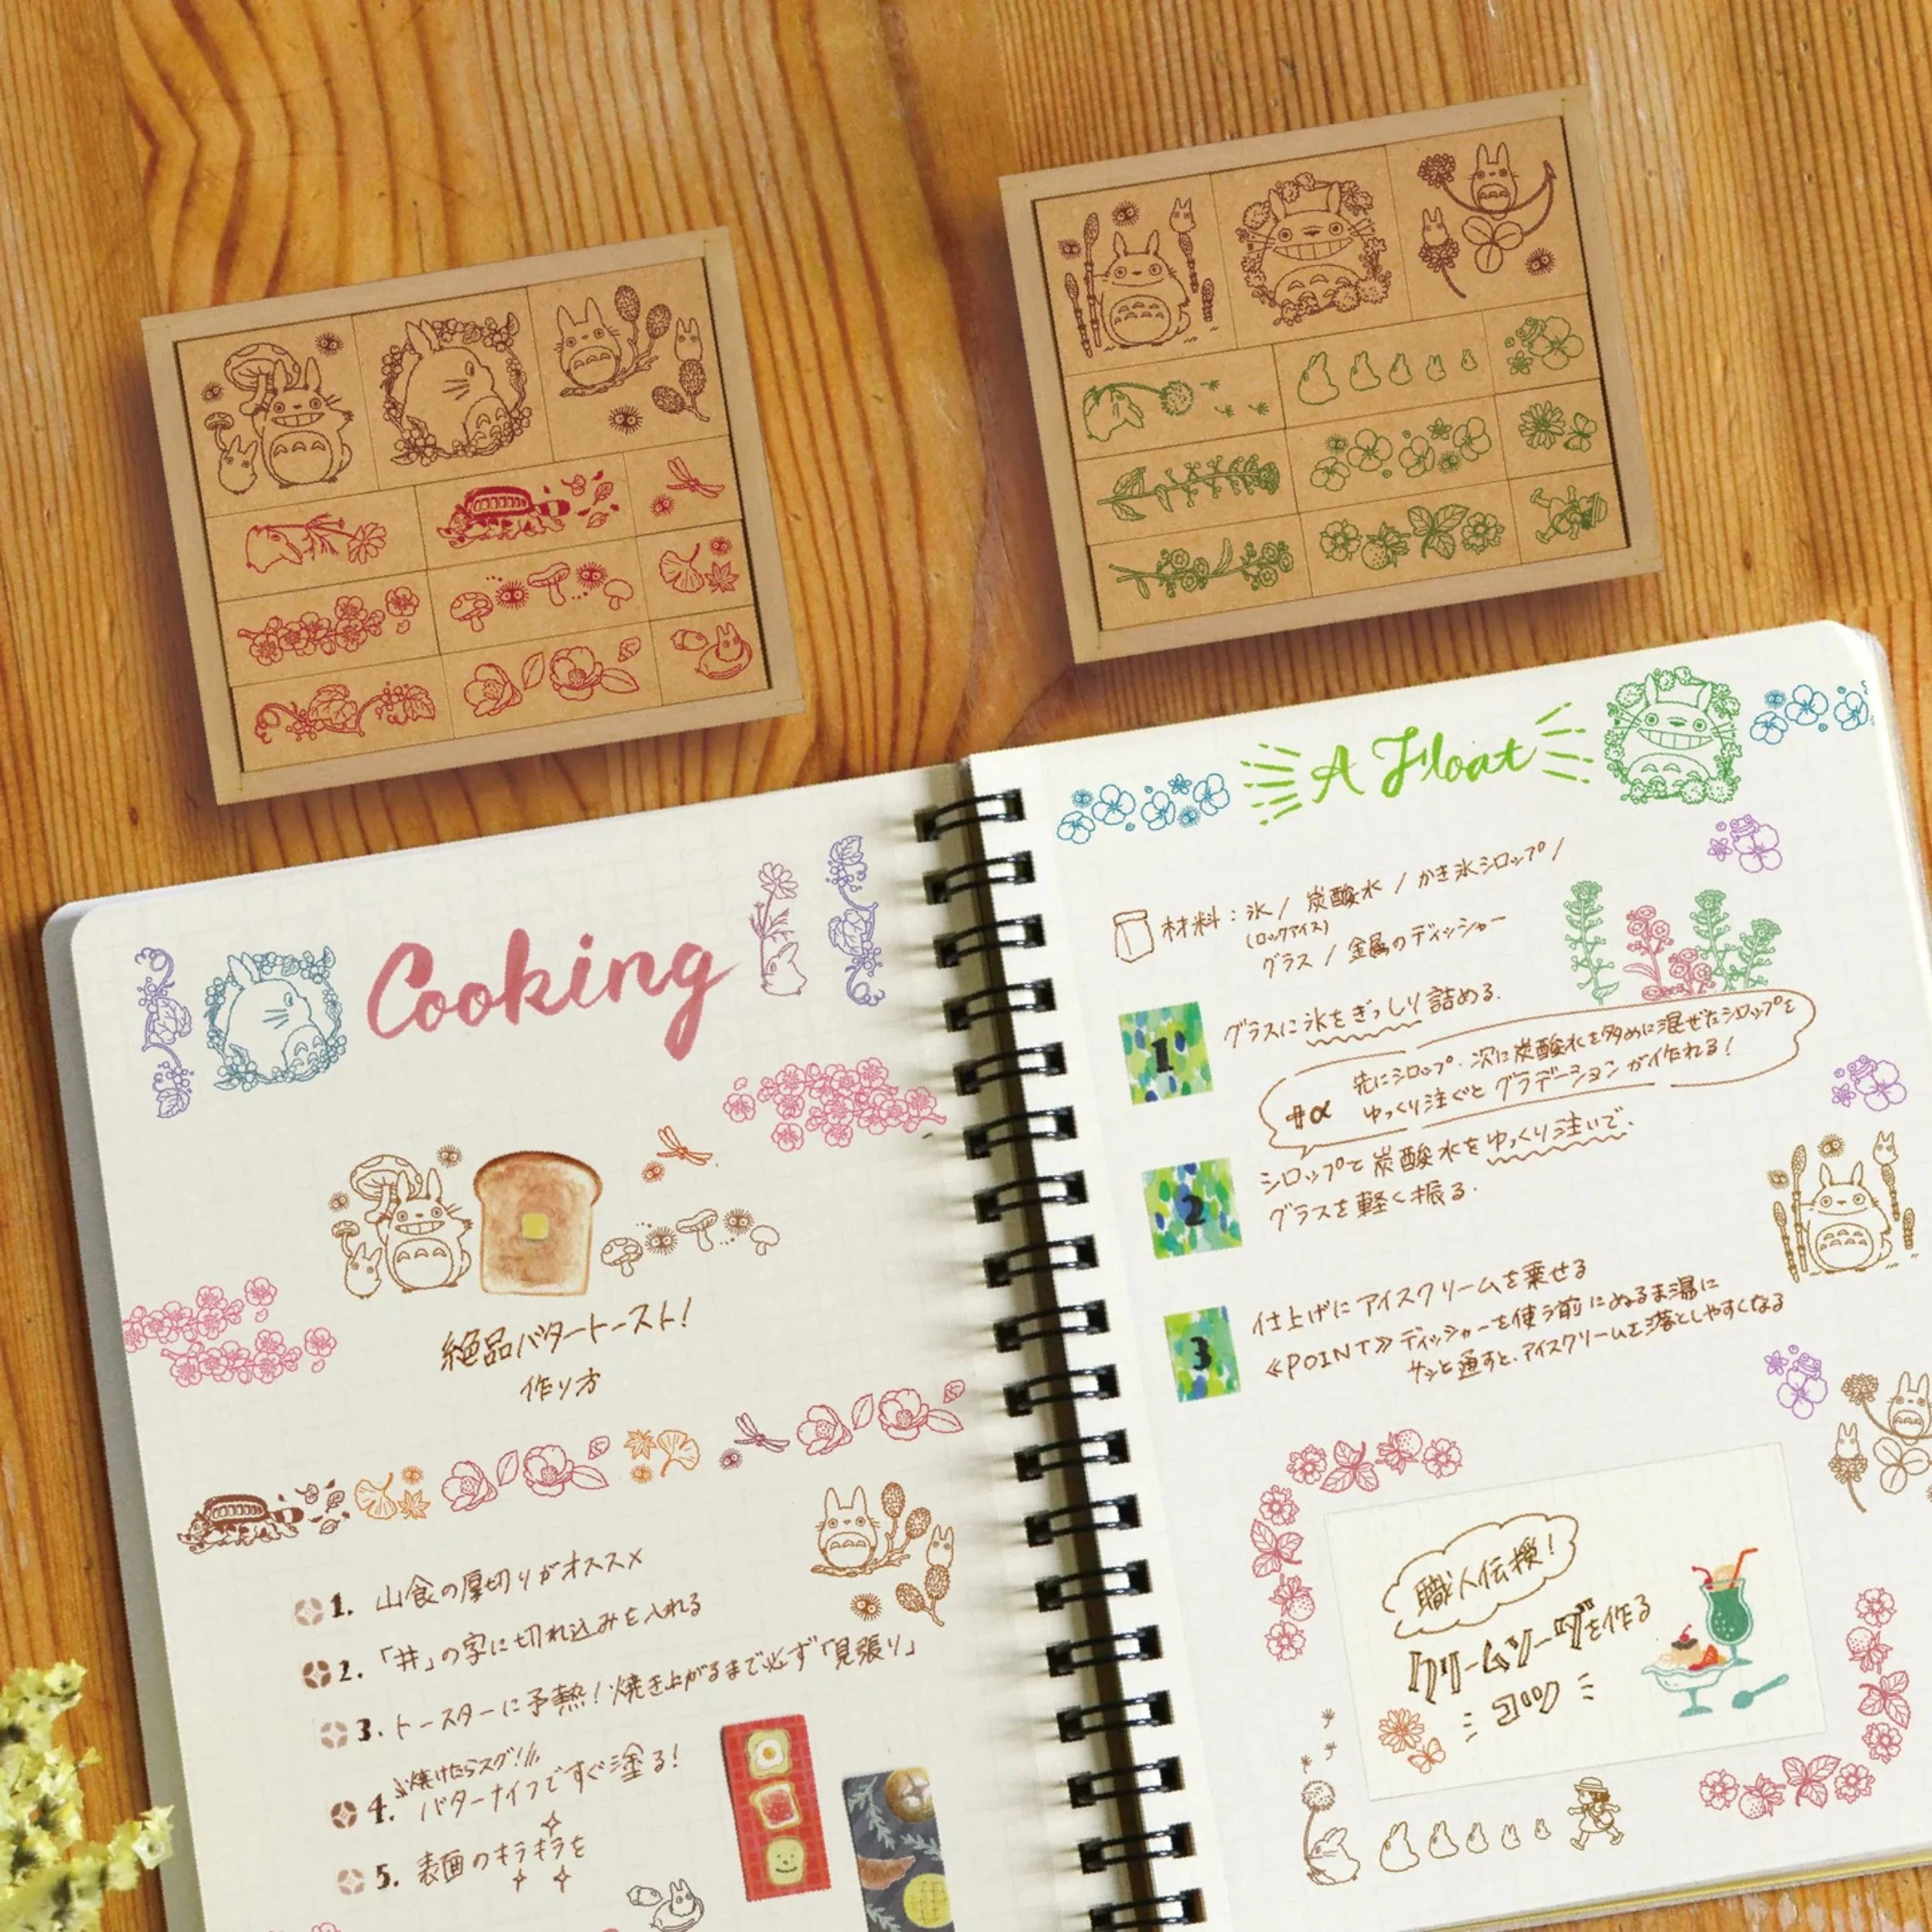 Cooking
絶品バタートースト!
作り方
1. 山食の厚切りがオススメ
2. 「井」の字に切れ込みを入れる
3. トースターに予熱!焼き上がるまで必ず「見張り」
焼けたらスグ!
4. バターナイフですぐ塗る!
5. 表面のキラキラを
A Float
材料:氷 / 炭酸水 / かき氷シロップ /
(ロックアイス)
グラス / 金属のディッシャー
1
グラスに氷をぎっしり詰める.
+α
先にシロップ・次に炭酸水を多めに混ぜたシロップを
ゆっくり注ぐと グラデーションが作れる!
2
シロップと炭酸水をゆっくり注いで.
グラスを軽く振る.
3
仕上げにアイスクリームを乗せる
≪POINT≫ ディッシャーを使う前にぬるま湯に
サッと通すと、アイスクリームを落としやすくなる
職人伝授!
クリームソーダを作る
コツ